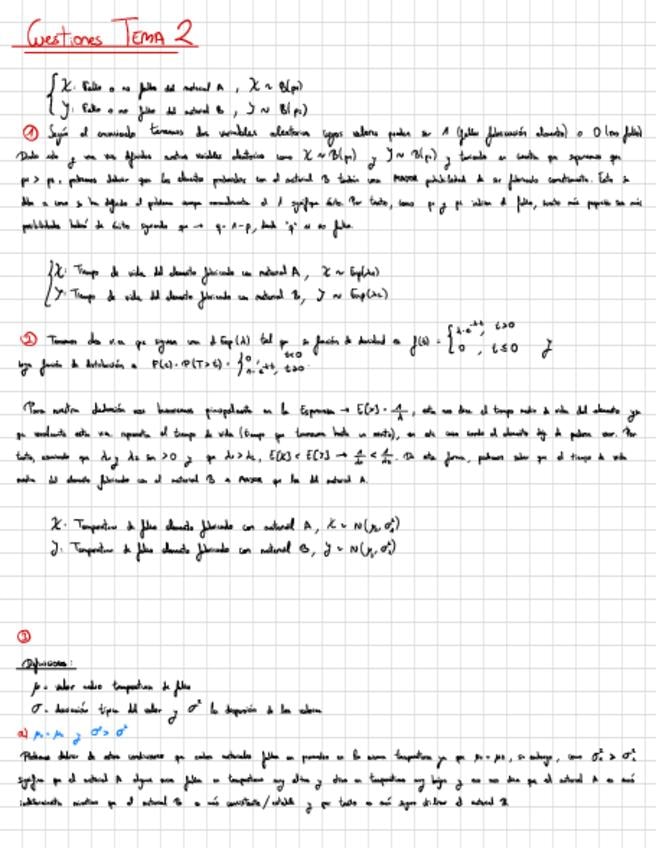 Cuestiones TEMA 2
X: Fallo o no fallo del material A, X ~ B(p₁)
Y: Fallo o no fallo del material B, Y ~ B(p₂)
① Según el enunciado tenemos dos variables aleatorias cuyos valores pueden ser 1 (fallo fabricación elemento) o 0 (no fallo)
Dado esto y una vez definidas nuestras variables aleatorias como X ~ B(p₁) y Y ~ B(p₂) y teniendo en cuenta que
podemos deducir que los elementos fabricados con el material B tendrán una MAYOR probabilidad de ser fabricado correctamente. Esto se
debe a como se ha definido el problema aunque normalmente el 1 significa éxito. Por tanto, como p₁ y p₂ indican el fallo, cuanto más pequeño sea más
probabilidad habrá de éxito siguiendo que → q = 1-p, donde "q" es no fallo.
X: Tiempo de vida del elemento fabricado con material A, X ~ Exp(λ₁)
Y: Tiempo de vida del elemento fabricado con material B, Y ~ Exp(λ₂)
② Tenemos dos v.a. que siguen una d. Exp(λ) tal que su función de densidad es f(t) = { λ·e^-λt, t>0
0, t≤0 y
cuya función de distribución es
Para nuestra deducción nos basaremos principalmente en la Esperanza → E[X] = 1/λ, esta nos dice el tiempo medio de vida del elemento ya
que realmente esta v.a. representa el tiempo de vida (tiempo que transcurre hasta un evento), en este caso cuando el elemento deja de Por
tanto, sabiendo que λ₁ y λ₂ son >0 y que λ₁>λ₂, E[X] < E[Y] → 1/λ₁ < 1/λ₂. De esta forma, podemos saber que el tiempo de vida
medio del elemento fabricado con el material B es MAYOR que los del material A.
X: Temperatura de fallo elemento fabricado con material A, X ~ N(μ₁, σ₁²)
Y: Temperatura de fallo elemento fabricado con material B, Y ~ N(μ₂, σ₂²)
③
Definiciones:
μ = valor medio temperatura de fallo
σ = desviación típica del valor y σ² la dispersión de los valores
a) μ₁ = μ₂ y σ₁² > σ₂²
Podemos deducir de estas condiciones que ambos materiales fallan en promedio en la misma temperatura ya que μ₁ = μ₂, sin embargo, como σ₁² > σ₂²
significa que el material A algunas veces fallará en temperaturas muy altas y otras en temperaturas muy bajas y eso nos dice que el material A es más
mientras que el material B es más consistente/estable y por tanto es más seguro utilizar el material B.